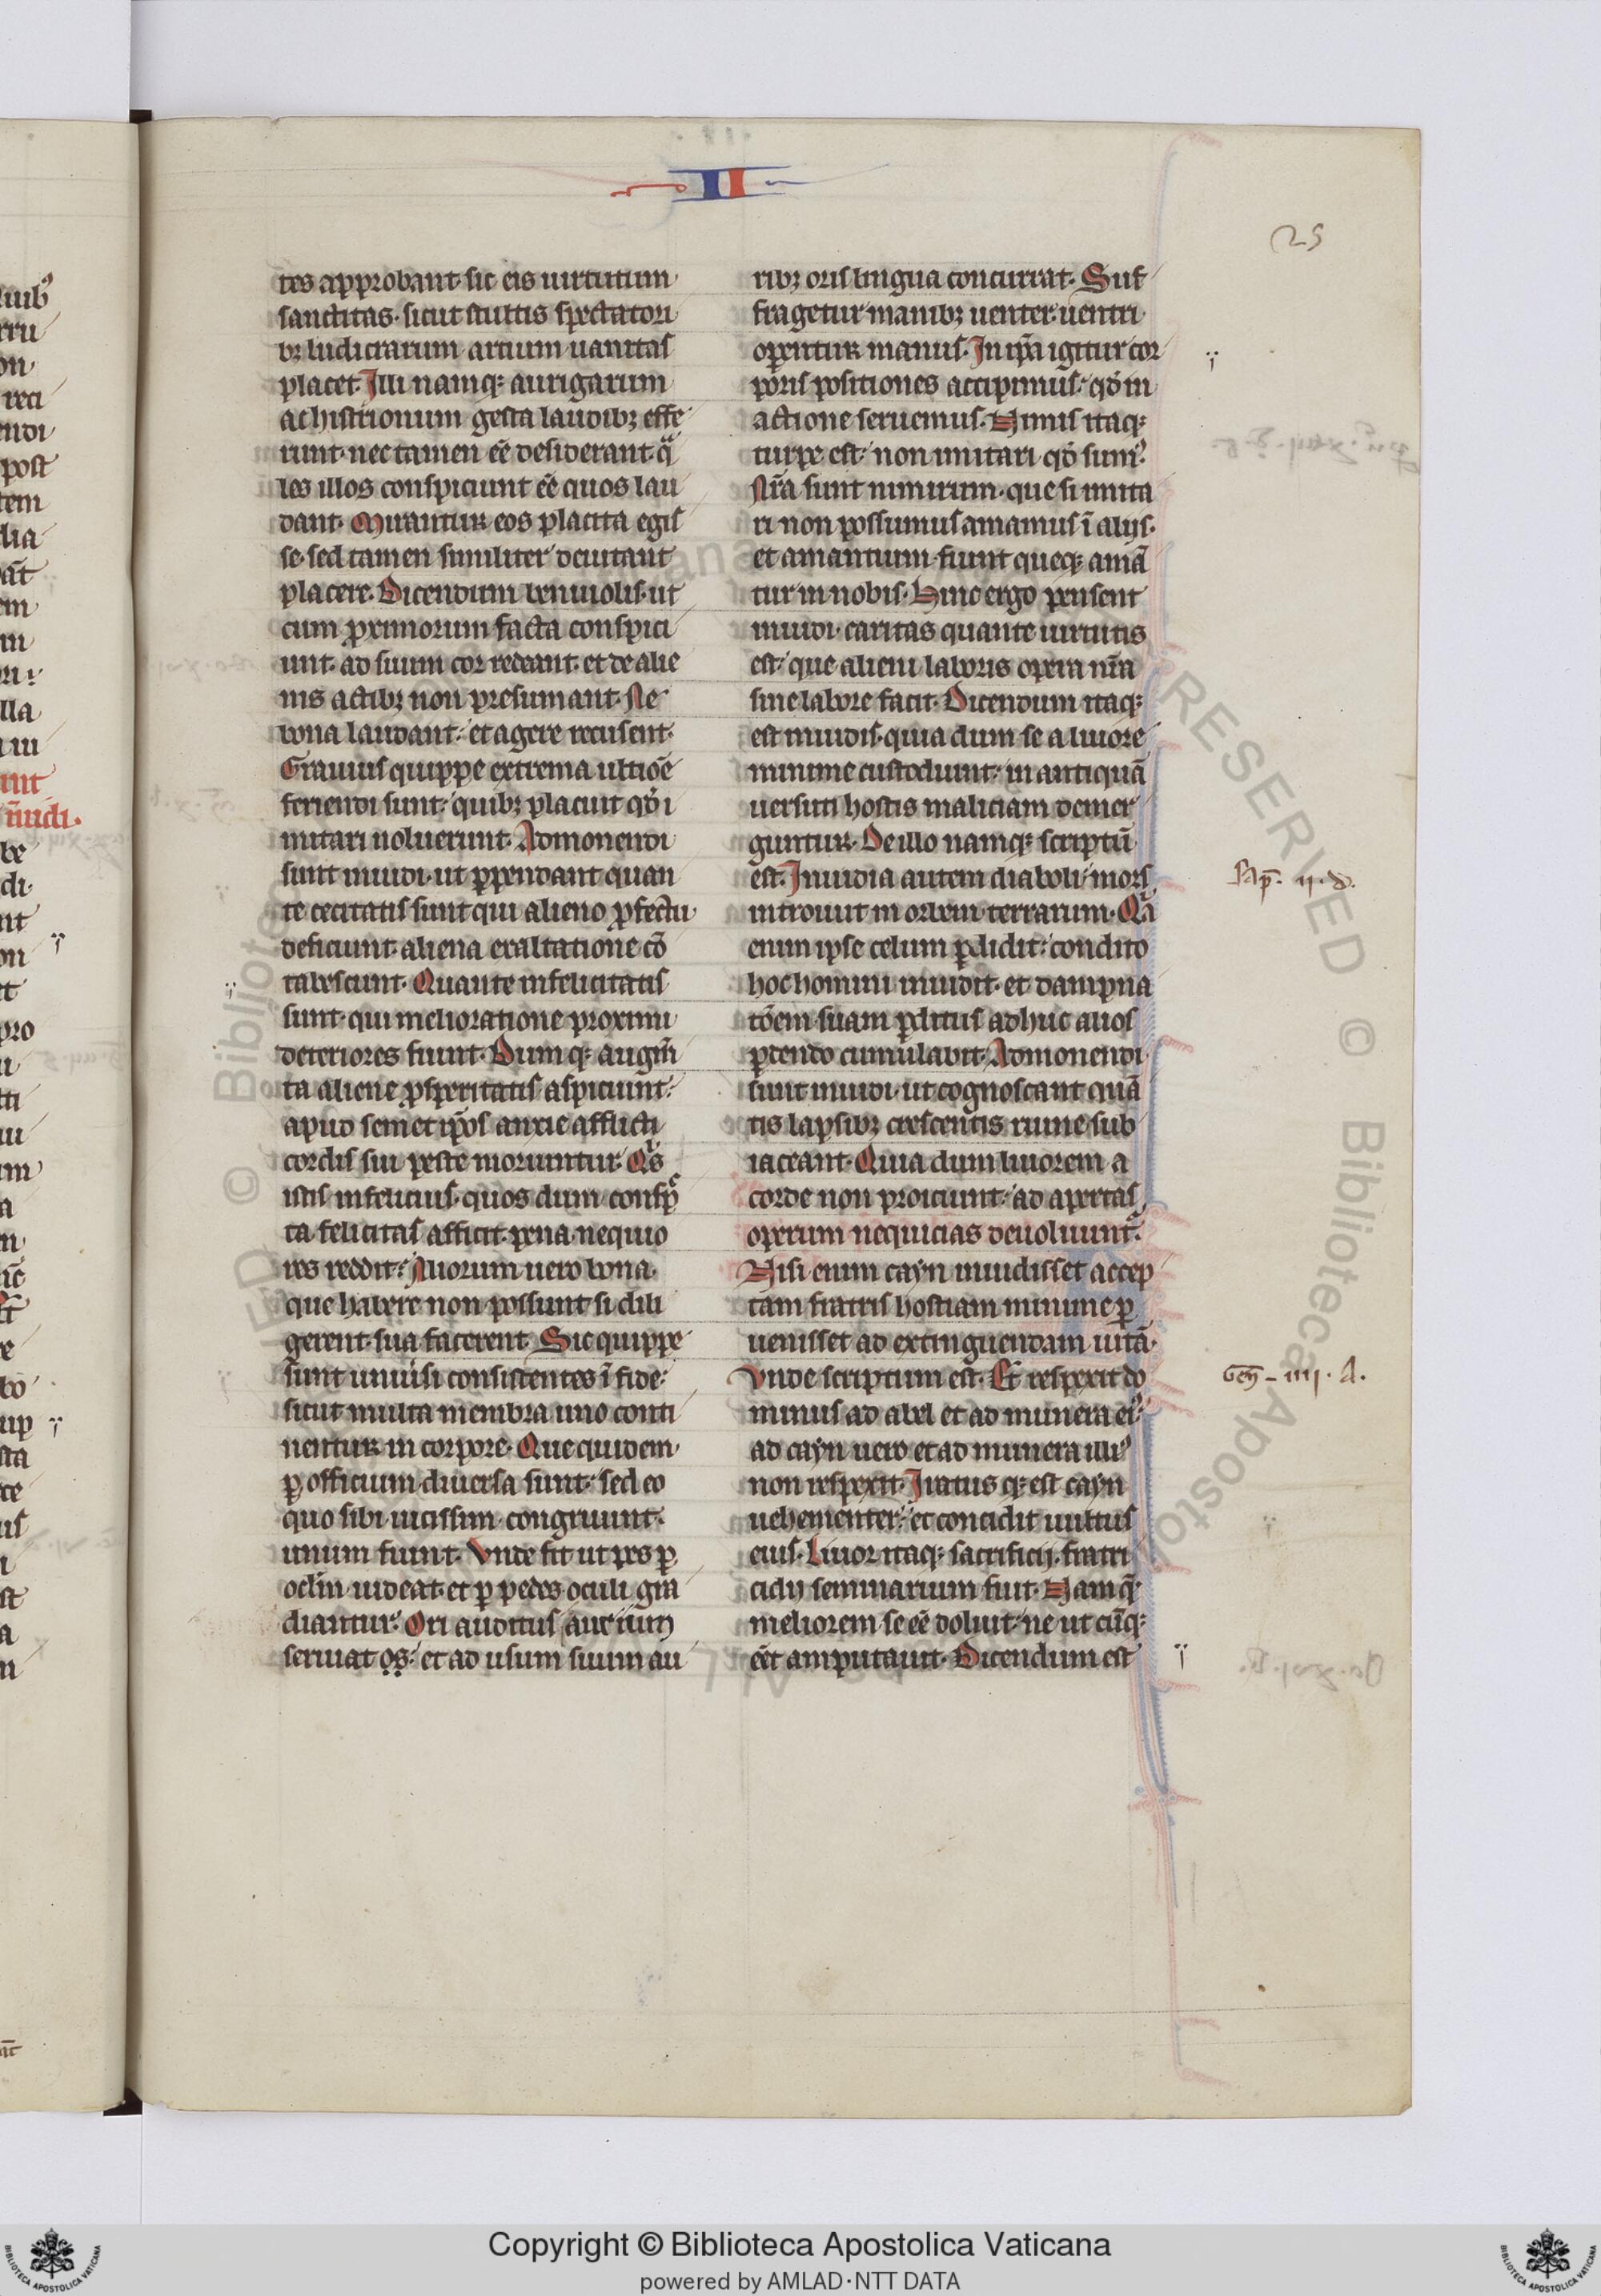 II
25
tes approbant sic eis uirtutum
sanctitas. sicut stultis spectatori
bꝫ ludicrarum artium uanitas
placet. Illi namqꝫ aurigarum
ac histrionum gesta laudibꝫ effe
runt. nec tamen ee̅ desiderant. qͣ
les illos conspiciunt ee̅ quos lau
dant. Mirantur eos placita egis
se. sed tamen similiter deuitant
placere. Dicendum beniuolis. ut
cum ꝓximorum facta conspici
unt. ad suum cor redeant. et de alie
nis actibꝫ non presumant. Ne
bona laudant. et agere recusent.
Grauius quippe extrema ultio̅e
feriendi sunt. quibꝫ placuit qd̓ i
mitari noluerunt. Admonendi
sunt inuidi. ut ꝑpendant quan
te cecitatis sunt qui alieno ꝓfectu
deficiunt. aliena exaltatione co̅
tabescunt. Quante infelicitatis
sunt. qui melioratione proximi
deteriores fiunt. Dumqꝫ augm̅
ta aliene ꝓsperitatis aspiciunt.
apud semet ip̅os anxie afflicti
cordis sui peste moriuntur. Qͥs
istis infelicius. quos dum consp̅
ta felicitas afficit. pena nequio
res reddit. Aliorum uero bona.
que habere non possunt si dili
gerent. sua facerent. Sic quippe
sunt uniuersi consistentes i̅ fide.
sicut multa membra uno conti
nentur in corpore. Que quidem
ꝑ officium diuersa sunt. sed eo
quo sibi uicissim congruunt.
unum fiunt. Unde fit ut pes ꝑ
oclm̅ uideat. et ꝑ pedes oculi gra
diantur. Ori auditus aurium
seruiat os. et ad usum suum au
ribꝫ oris lingua concurrat. Suf
fragetur manibꝫ uenter. uentri
operentur manus. In ip̅a igitur cor
poris positiones accipimus. qd̓ in
actione seruemus. Nimis itaqꝫ
turpe est. non imitari qd̓ sumꝰ.
Nr̅a sunt nimirum. que si imita
ri non possumus amamus i̅ alijs.
et amantium fiunt queqꝫ ama̅
tur in nobis. Hinc ergo pensent
inuidi. caritas quante uirtutis
est. que alieni laboris opera nr̅a
sine labore facit. Dicendum itaqꝫ
est inuidis. quia dum se a liuore
minime custodiunt. in antiqua̅
uersuti hostis maliciam demer
guntur. De illo namqꝫ scriptu̅
est. Inuidia autem diaboli mors
introiuit in orbem terrarum. Qͥa
enim ipse celum ꝑdidit. condito
hoc homini inuidit. et dampna
to̅em suam ꝑditus adhuc alios
ꝑdendo cumulauit. Admonendi
sunt inuidi. ut cognoscant qua̅
tis lapsibꝫ crescentis ruine sub
iaceant. Quia dum liuorem a
corde non proiciunt. ad apertas
operum nequicias deuoluunt̅.
Nisi enim cayn inuidisset accep
tam fratris hostiam minime ꝑ
uenisset ad extinguendam uita̅.
Unde scriptum est. Et respexit do
minus ad abel et ad munera eiꝰ.
ad cayn uero et ad munera illiꝰ
non respexit. Iratusqꝫ est cayn
uehementer. et concidit uultus
eius. Liuor itaqꝫ sacrificij. fratri
cidij seminarium fuit. Nam q̅
meliorem se ee̅ doluit. ne ut cu̅qꝫ
ee̅t amputauit. Dicendum est
Sap̅. ij. d.
Gen̅ - iiij. A.
Copyright © Biblioteca Apostolica Vaticana
powered by AMLAD·NTT DATA